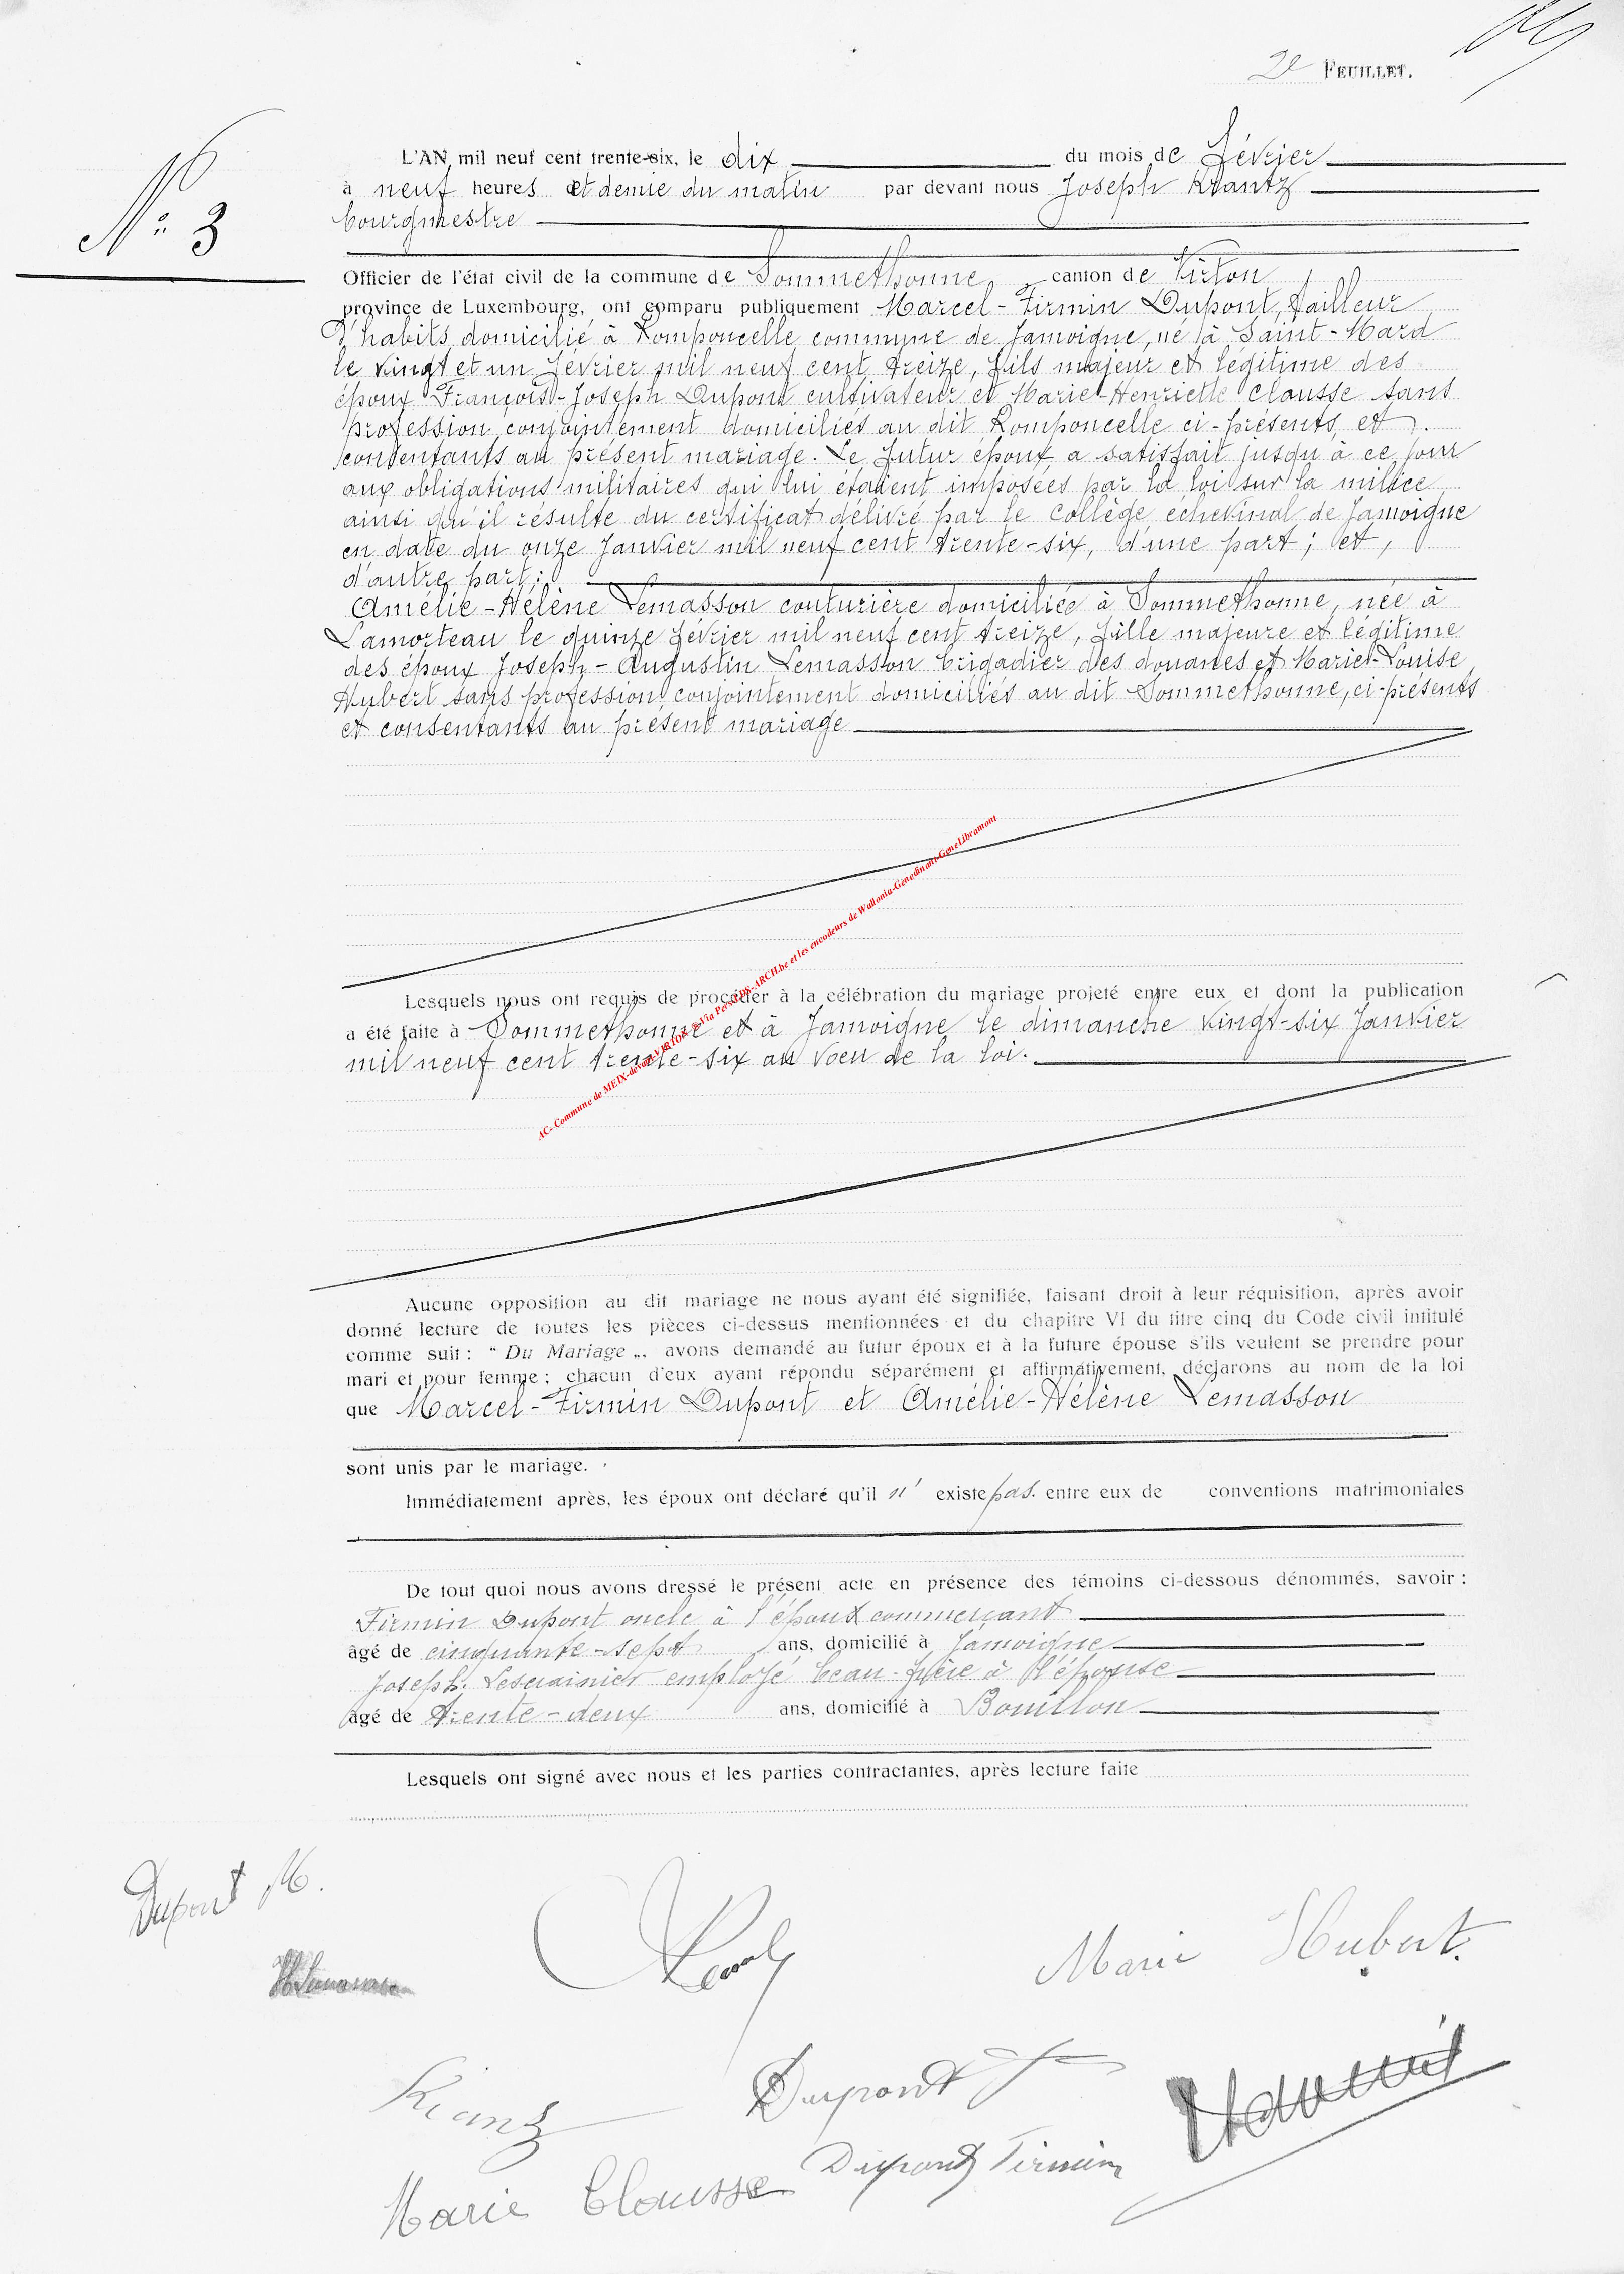 2e FEUILLET.
N° 3
L'AN mil neuf cent trente-six, le dix du mois de février
à neuf heures et demie du matin par devant nous Joseph Krantz
bourgmestre
Officier de l'état civil de la commune de Sommethonne canton de Virton
province de Luxembourg, ont comparu publiquement Marcel-Firmin Dupont, tailleur
d'habits, domicilié à Romponcelle commune de Jamoigne, né à Saint-Mard
le vingt et un février mil neuf cent treize, fils majeur et légitime des
époux François-Joseph Dupont cultivateur et Marie-Henriette Clausse sans
profession conjointement domiciliés au dit Romponcelle ci-présents et
consentants au présent mariage. Le futur époux a satisfait jusqu'à ce jour
aux obligations militaires qui lui étaient imposées par la loi sur la milice
ainsi qu'il résulte du certificat délivré par le collège échevinal de Jamoigne
en date du onze janvier mil neuf cent trente-six, d'une part ; et,
d'autre part :
Amélie-Hélène Lemasson couturière domiciliée à Sommethonne, née à
Lamorteau le quinze février mil neuf cent treize, fille majeure et légitime
des époux Joseph-Augustin Lemasson brigadier des douanes et Marie-Louise
Hubert sans profession conjointement domiciliés au dit Sommethonne, ci-présents
et consentants au présent mariage
AC- Commune de MEIX-devant-VIRTON @Via Pers-CDS-ARCH.be et les encodeurs de Wallonia-Genedinant-GeneLibramont
Lesquels nous ont requis de procéder à la célébration du mariage projeté entre eux et dont la publication
a été faite à Sommethonne et à Jamoigne le dimanche vingt-six janvier
mil neuf cent trente-six au voeu de la loi.
Aucune opposition au dit mariage ne nous ayant été signifiée, faisant droit à leur réquisition, après avoir
donné lecture de toutes les pièces ci-dessus mentionnées et du chapitre VI du titre cinq du Code civil intitulé
comme suit : “ Du Mariage „, avons demandé au futur époux et à la future épouse s'ils veulent se prendre pour
mari et pour femme ; chacun d'eux ayant répondu séparément et affirmativement, déclarons au nom de la loi
que Marcel-Firmin Dupont et Amélie-Hélène Lemasson
sont unis par le mariage.
Immédiatement après, les époux ont déclaré qu'il n' existe pas entre eux de conventions matrimoniales
De tout quoi nous avons dressé le présent acte en présence des témoins ci-dessous dénommés, savoir :
Firmin Dupont oncle à l'époux commerçant
âgé de cinquante-sept ans, domicilié à Jamoigne
Joseph employé beau-frère à l'épouse
âgé de trente-deux ans, domicilié à Bouillon
Lesquels ont signé avec nous et les parties contractantes, après lecture faite
Dupont M.
Marie Hubert.
Krantz
Dupont J
Dupont Firmin
Marie Clausse